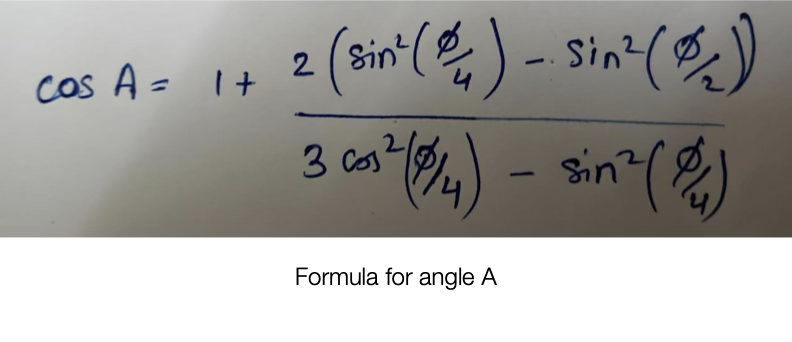 cos A = 1 + 2 (sin²(ø/4) - sin²(ø/2))
3 cos²(ø/4) - sin²(ø/4)
Formula for angle A